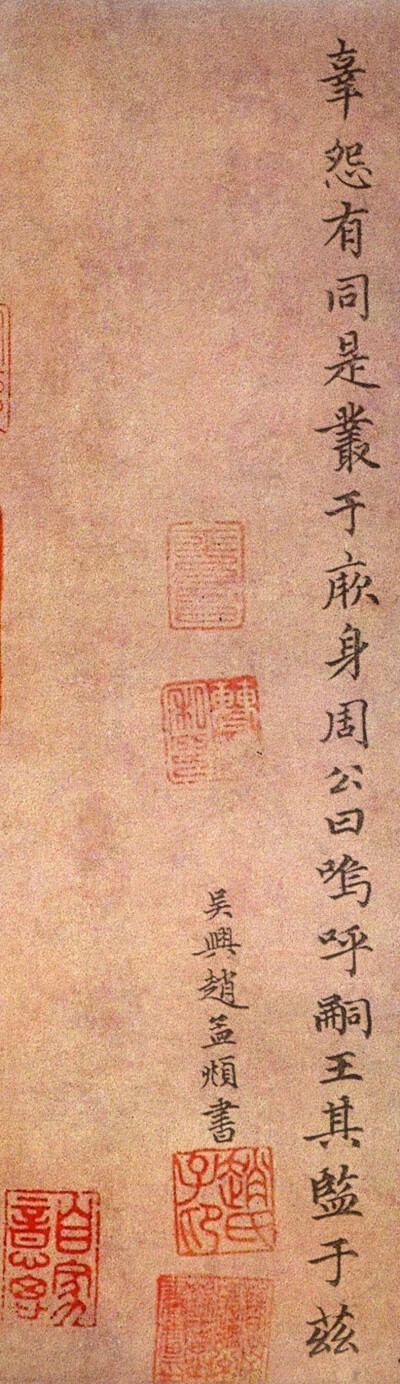 辜怨有同是叢于厥身周公曰嗚呼嗣王其監于茲
吳興趙孟頫書
趙氏子昂